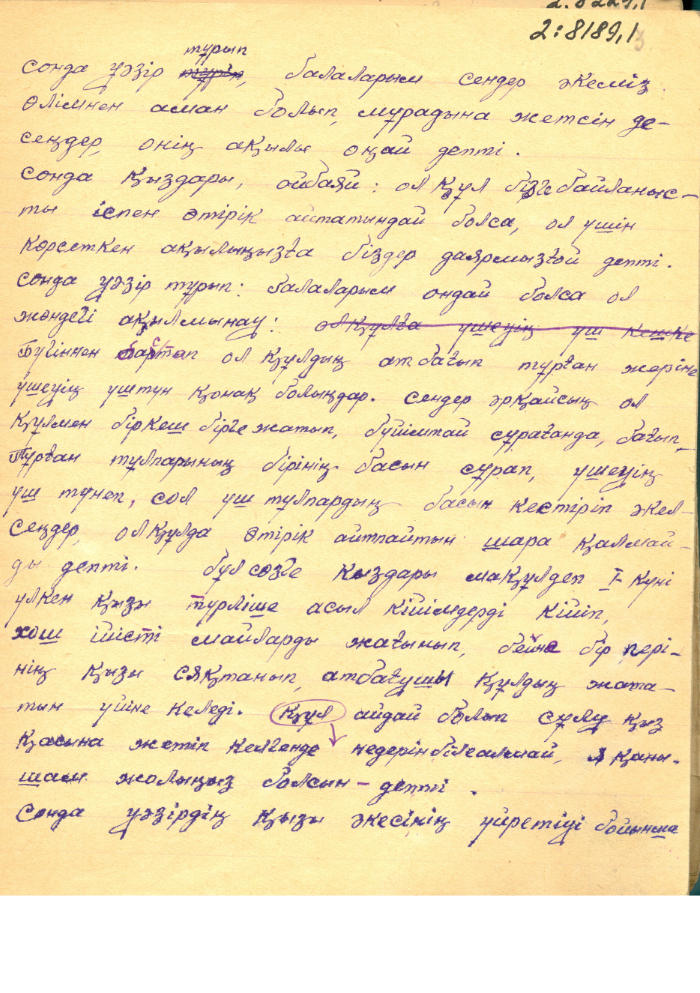 2:8189,1
сонда уәзір турып, балаларым сендер әкеміз
өлімнен аман болып, мұрадына жетсін де-
сеңдер, оның ақылы оңай депті.
сонда қыздары, ойбаяй: ол құл бізге байланыс-
ты іспен өтірік айтатындай болса, ол үшін
көрсеткен ақылыңызға біздер даярмызғой депті.
сонда уәзір тұрып: балаларым ондай болса ол
жөндегі ақылмынау: олқұлға үшеуің үш кешке
Бүгіннен бастап ол құлдың ат бағып тұрған жеріне
үшеуің үштүн қонақ болыңдар. сендер әрқайсың ол
Құлмен біркеш бірге жатып, бұйімтай сұрағанда, бағып,
Тұрған тұлпарының бірінің басын сұрап, үшеуің
үш түнеп, сол үш тұлпардың басын кестіріп әкел-
сеңдер, олқұлда өтірік айтпайтын шара қалмай-
ды депті. бұл сөзге қыздары мақұлдеп I-күні
үлкен қызы түрліше асыл кійімдерді кійіп,
хош ййісті майларды жағынып, бейне бір пері-
нің қызы сяқтанып, атбағушы құлдың жата-
тын үйіне келеді. Құл айдай болып сұлу қыз
қасына жетіп келгенде недерінбілеалмай, Қаны-
шам жолыңыз болсын - депті.
Сонда уәзірдің қызы әкесінің үйретіуі бойынша